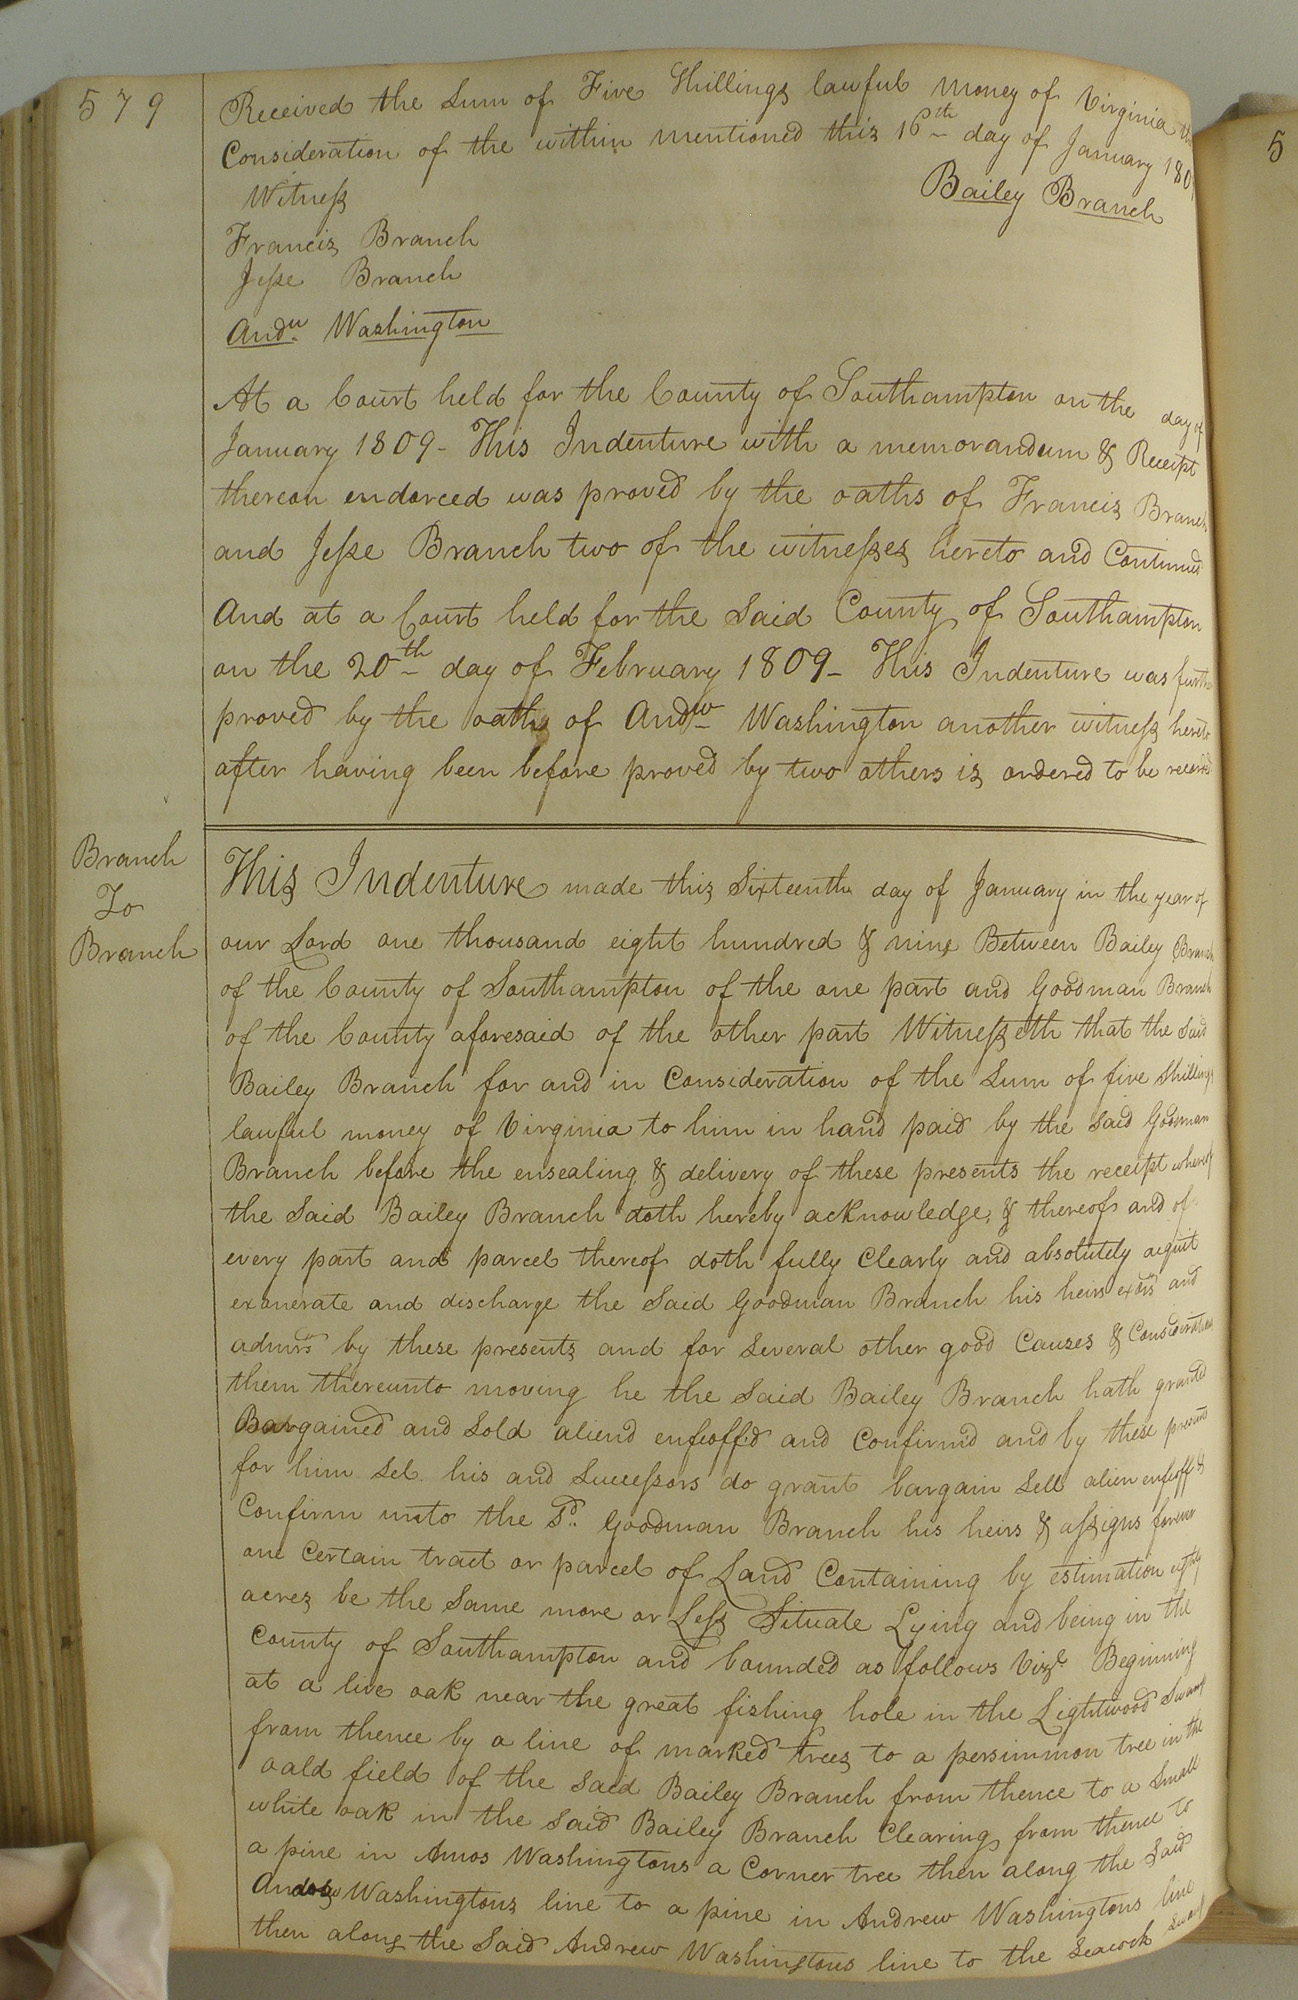 579
Received the Sum of Five Shillings lawful money of Virginia the
Consideration of the within mentioned this 16th day of January 180
Witness
Bailey Branch
Francis Branch
Jesse Branch
Andw Washington
At a Court held for the County of Southampton on the day of
January 1809 - This Indenture with a memorandum & Receipt
thereon endorced was proved by the oaths of Francis Branch
and Jesse Branch two of the witnesses hereto and Continued
And at a Court held for the Said County of Southampton
on the 20th day of February 1809 - This Indenture was further
proved by the oaths of Andw Washington another witness hereto
after having been before proved by two others is ordered to be recorded
Branch
To
Branch
This Indenture made this Sixteenth day of January in the year of
our Lord one thousand eight hundred & nine Between Bailey Branch
of the County of Southampton of the one part and Goodman Branch
of the County aforesaid of the other part Witnesseth that the Said
Bailey Branch for and in Consideration of the Sum of five Shillings
lawful money of Virginia to him in hand paid by the Said Goodman
Branch before the ensealing & delivery of these presents the receipt whereof
the Said Bailey Branch doth hereby acknowledge, & thereof and of
every part and parcel thereof doth fully Clearly and absolutely acquit
exonerate and discharge the Said Goodman Branch his heirs exors and
admrs by these presents and for Several other good Causes & Considerations
them thereunto moving he the Said Bailey Branch hath granted
Bargained and Sold aliend enfeoff'd and Confirmd and by these presents
for him Sel. his and Successors do grant bargain Sell alien enfeoff &
Confirm unto the Sd. Goodman Branch his heirs & assigns forever
one Certain tract or parcel of Land Containing by estimation eighty
acres be the Same more or Less Situate Lying and being in the
County of Southampton and bounded as follows Vizt. Beginning
at a live oak near the great fishing hole in the Lightwood Swamp
from thence by a line of marked trees to a persimmon tree in the
oald field of the Said Bailey Branch from thence to a Small
white oak in the Said Bailey Branch Clearing from thence to
a pine in Amos Washingtons a Corner tree then along the Said
Washingtons line to a pine in Andrew Washingtons line
then along the Said Andrew Washingtons line to the Seacock Swamp
5